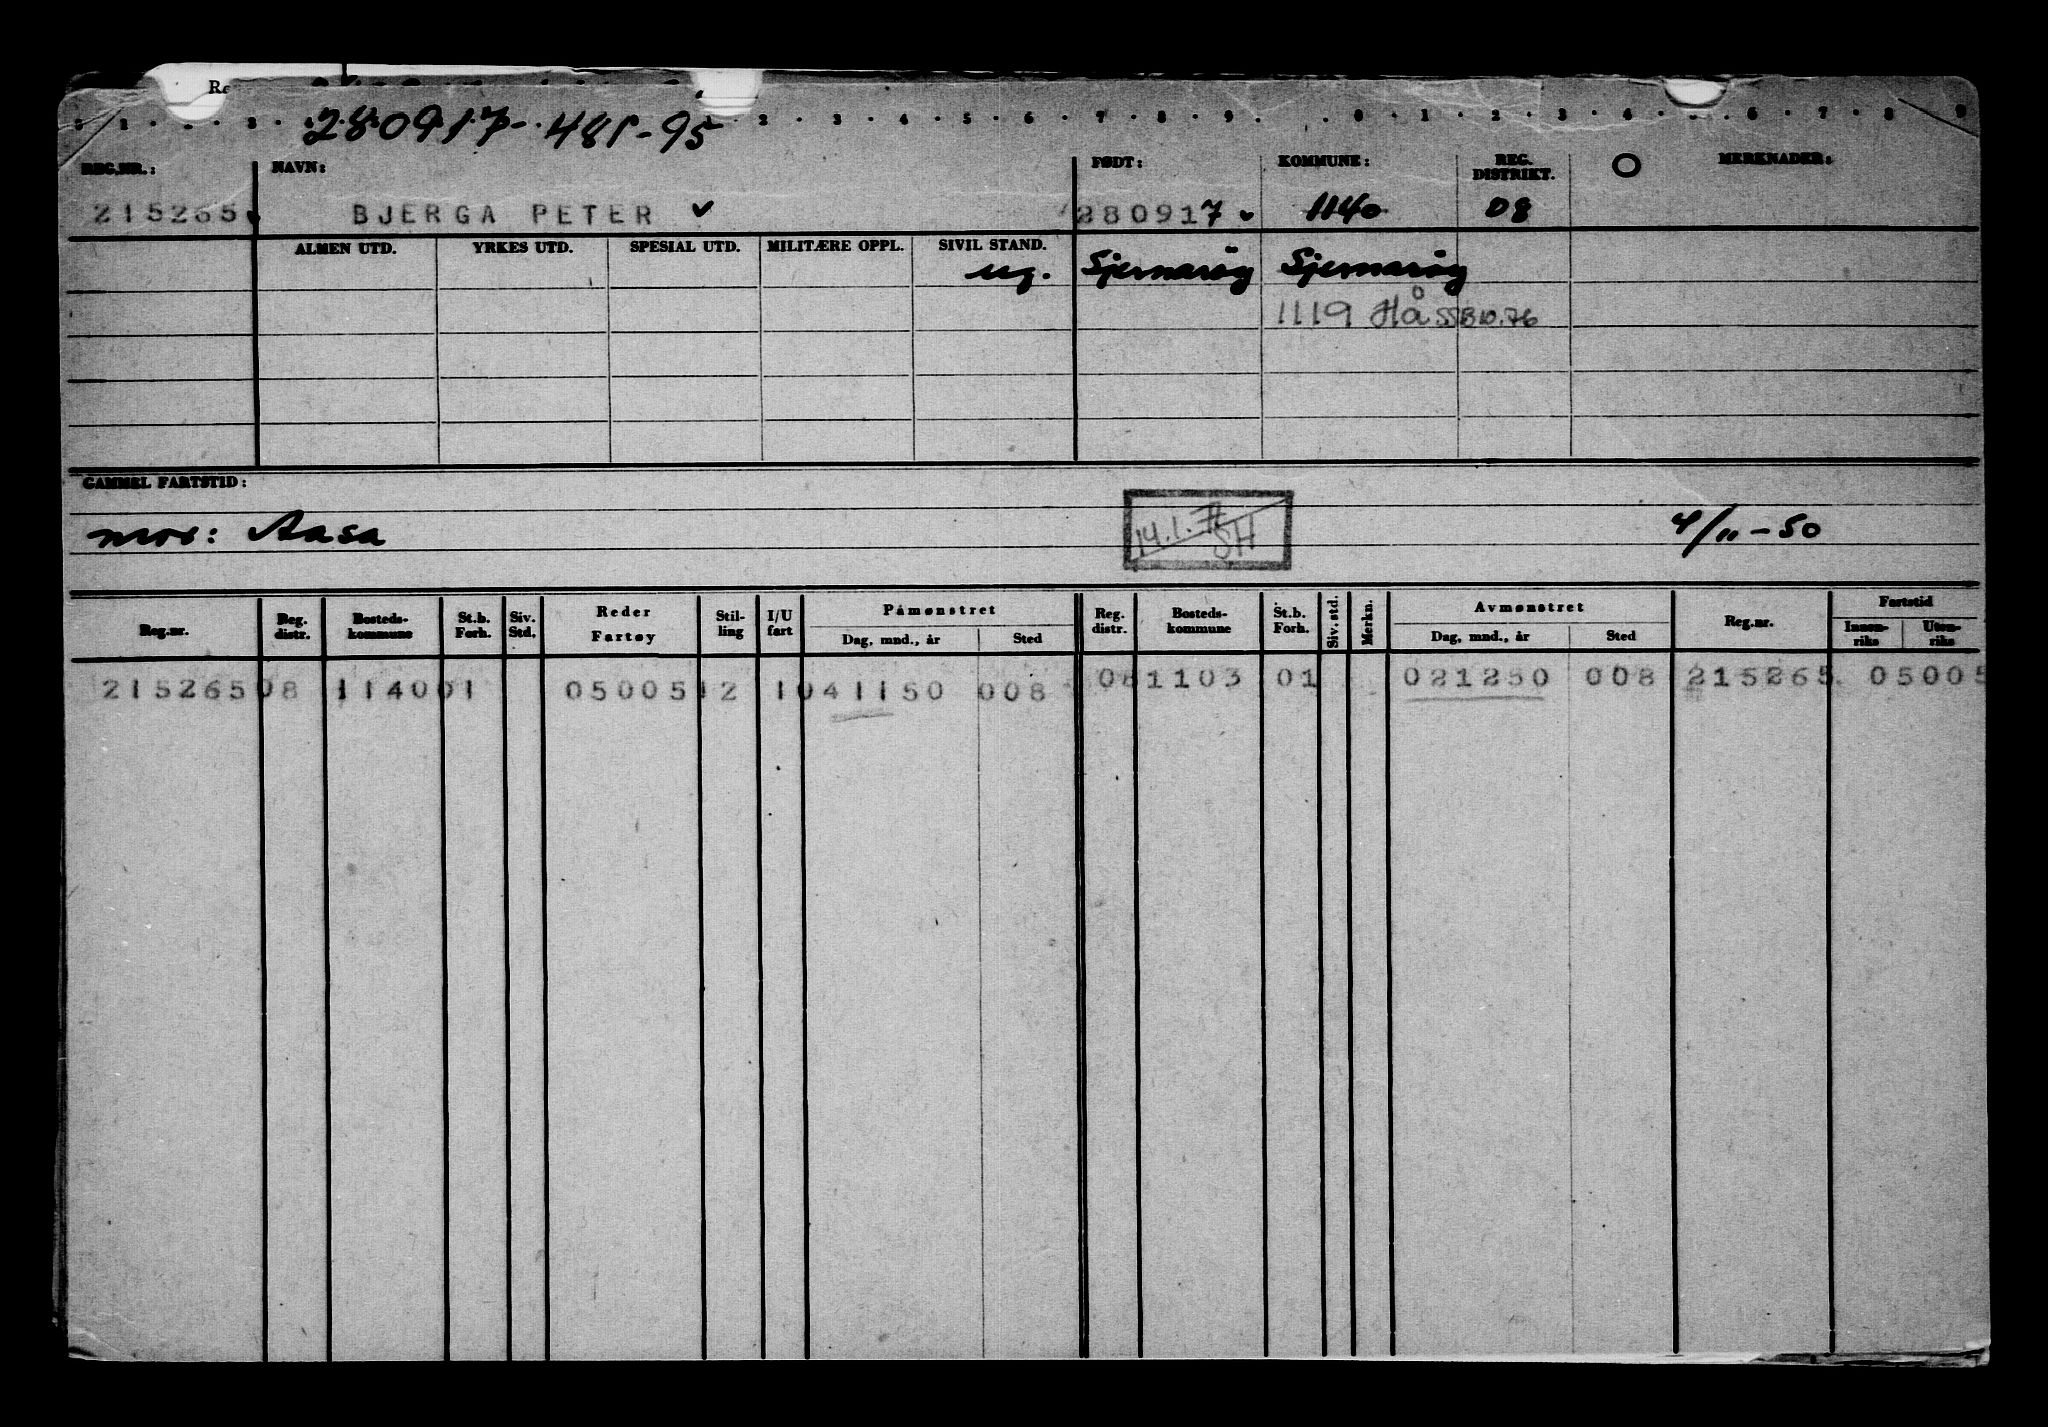 280917-
REG.NR.: NAVN: FØDT: KOMMUNE: REG. DISTRIKT. MERKNADER:
215265 BJERGA PETER ✓ 280917 1140 08
ALMEN UTD. YRKES UTD. SPESIAL UTD. MILITÆRE OPPL. SIVIL STAND.
ug. Sjernarøy Sjernarøy
1119 Hå SSB 10.76
GAMMEL FARTSTID:
mor: Aasa 4/11-50
14.1. SH
Reg.nr. Reg. distr. Bosteds-kommune St.b. Forh. Siv. Std. Reder Fartøy Stil-ling I/U fart Påmønstret Dag, mnd., år Sted Reg. distr. Bosteds-kommune St.b. Forh. Siv. std. Merkn. Avmønstret Dag, mnd., år Sted Reg.nr. Fartstid Innen-riks Uten-riks
215265 08 1140 01 05005 12 1 041150 008 08 1103 01 021250 008 215265 05005